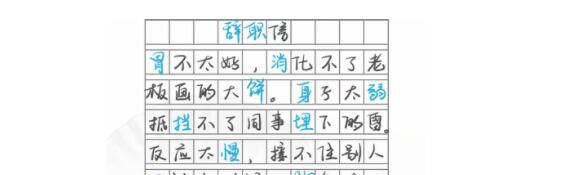 辞职信
胃不太好，消化不了老
板画的大饼。身子太弱
抵挡不了同事埋下的雷。
反应太慢，接不住别人